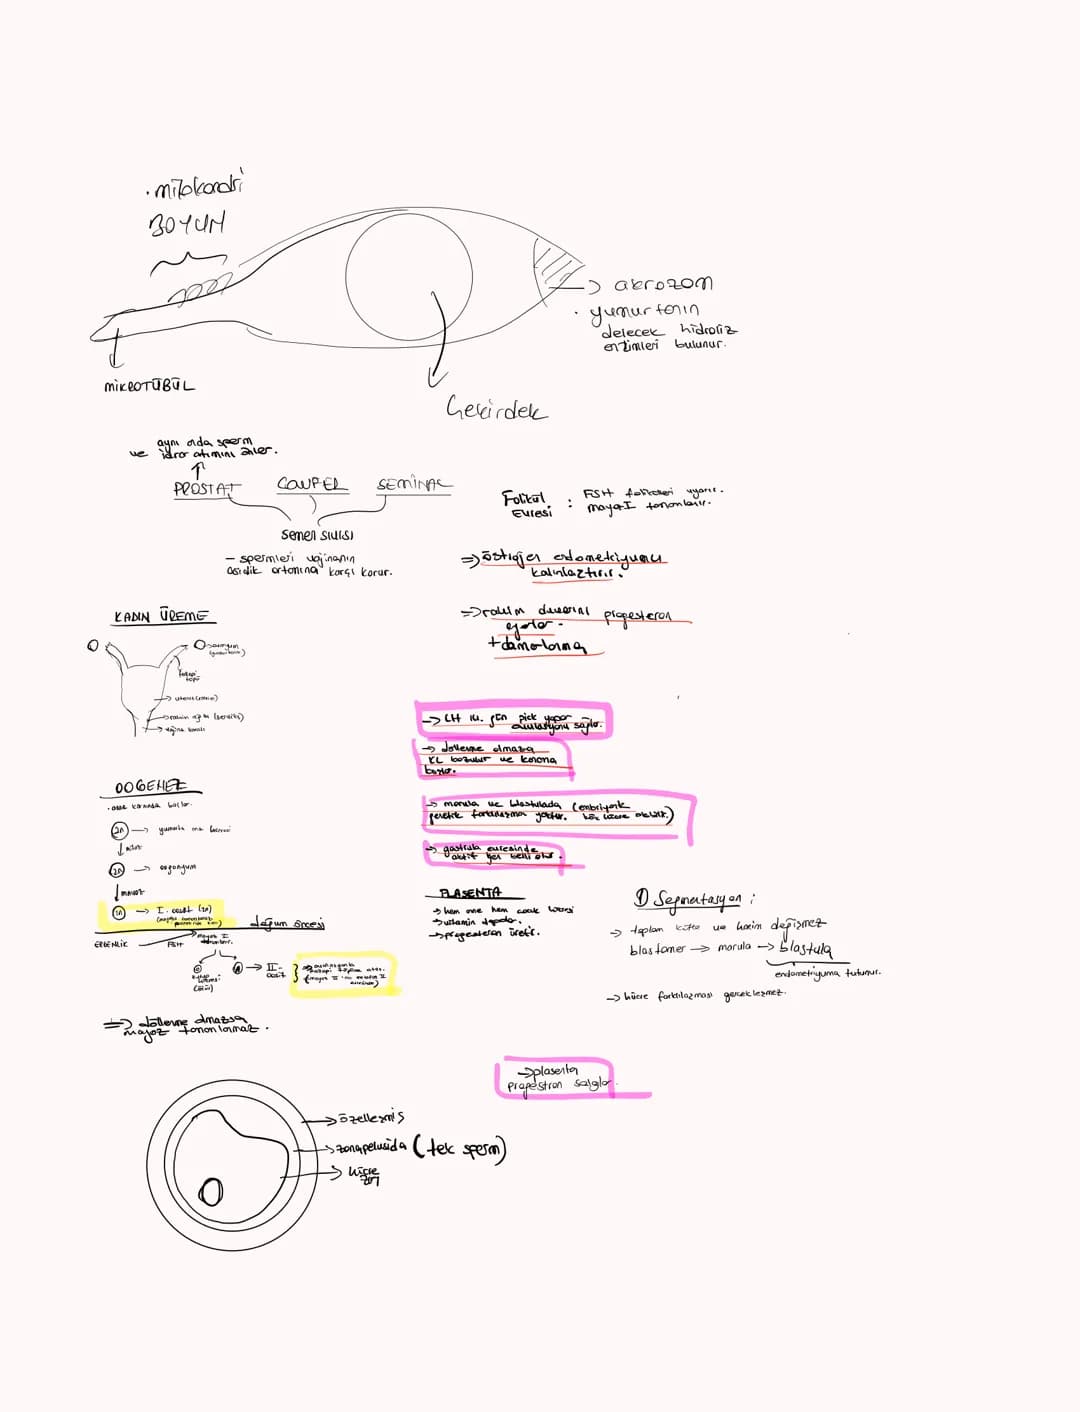 . mitokondri
BOYUN
-> akrozom
. yumurtanın
delecek hidroliz
enzimleri bulunur.
MİKROTÜBÜL
Çekirdek
aynı anda sperm
ve idrar atımını önler.
PROSTAT COWPER SEMİNAL
semen sıvısı
- spermleri vajinanın
asidik ortamına karşı korur.
Folikül Evresi : FSH folikülleri uyarır.
mayoz I tamamlanır.
=> östrojen endometriyumu
kalınlaştırır.
=> rahim duvarını progesteron
+ damarlanma
KADIN ÜREME
ovaryum
fallopi
tüpü
-> uterus (rahim)
-> rahim ağzı (serviks)
-> vajina kanalı
-> LH 14. gün pick yapar
ovulasyonu sağlar.
-> döllenme olmazsa
KL bozulur ve kanama
başlar.
-> morula ve blastulada (embriyonik
-> gastrula evresinde
aktif gen belli olur.
OOGENEZ
. anne karnında başlar.
2n -> yumurta ana hücresi
↓ mitoz
2n -> oogonyum
↓ mitoz
-> I. oosit (2n)
doğum öncesi
ERGENLİK FSH -> mayoz I
-> II. oosit
=> döllenme olmazsa
mayoz tamamlanmaz.
PLASENTA
-> hem anne hem çocuk
-> vitamin depolar.
-> progesteron üretir.
1) Segmentasyon :
-> toplam kütle ve hacim değişmez
blastomer -> morula -> blastula
endometriyuma tutunur.
-> hücre farklılaşması gerçekleşmez.
-> plasenta
progestron salgılar.
-> özelleşmiş
-> zonapelusida (tek sperm)
-> hücre
zarı